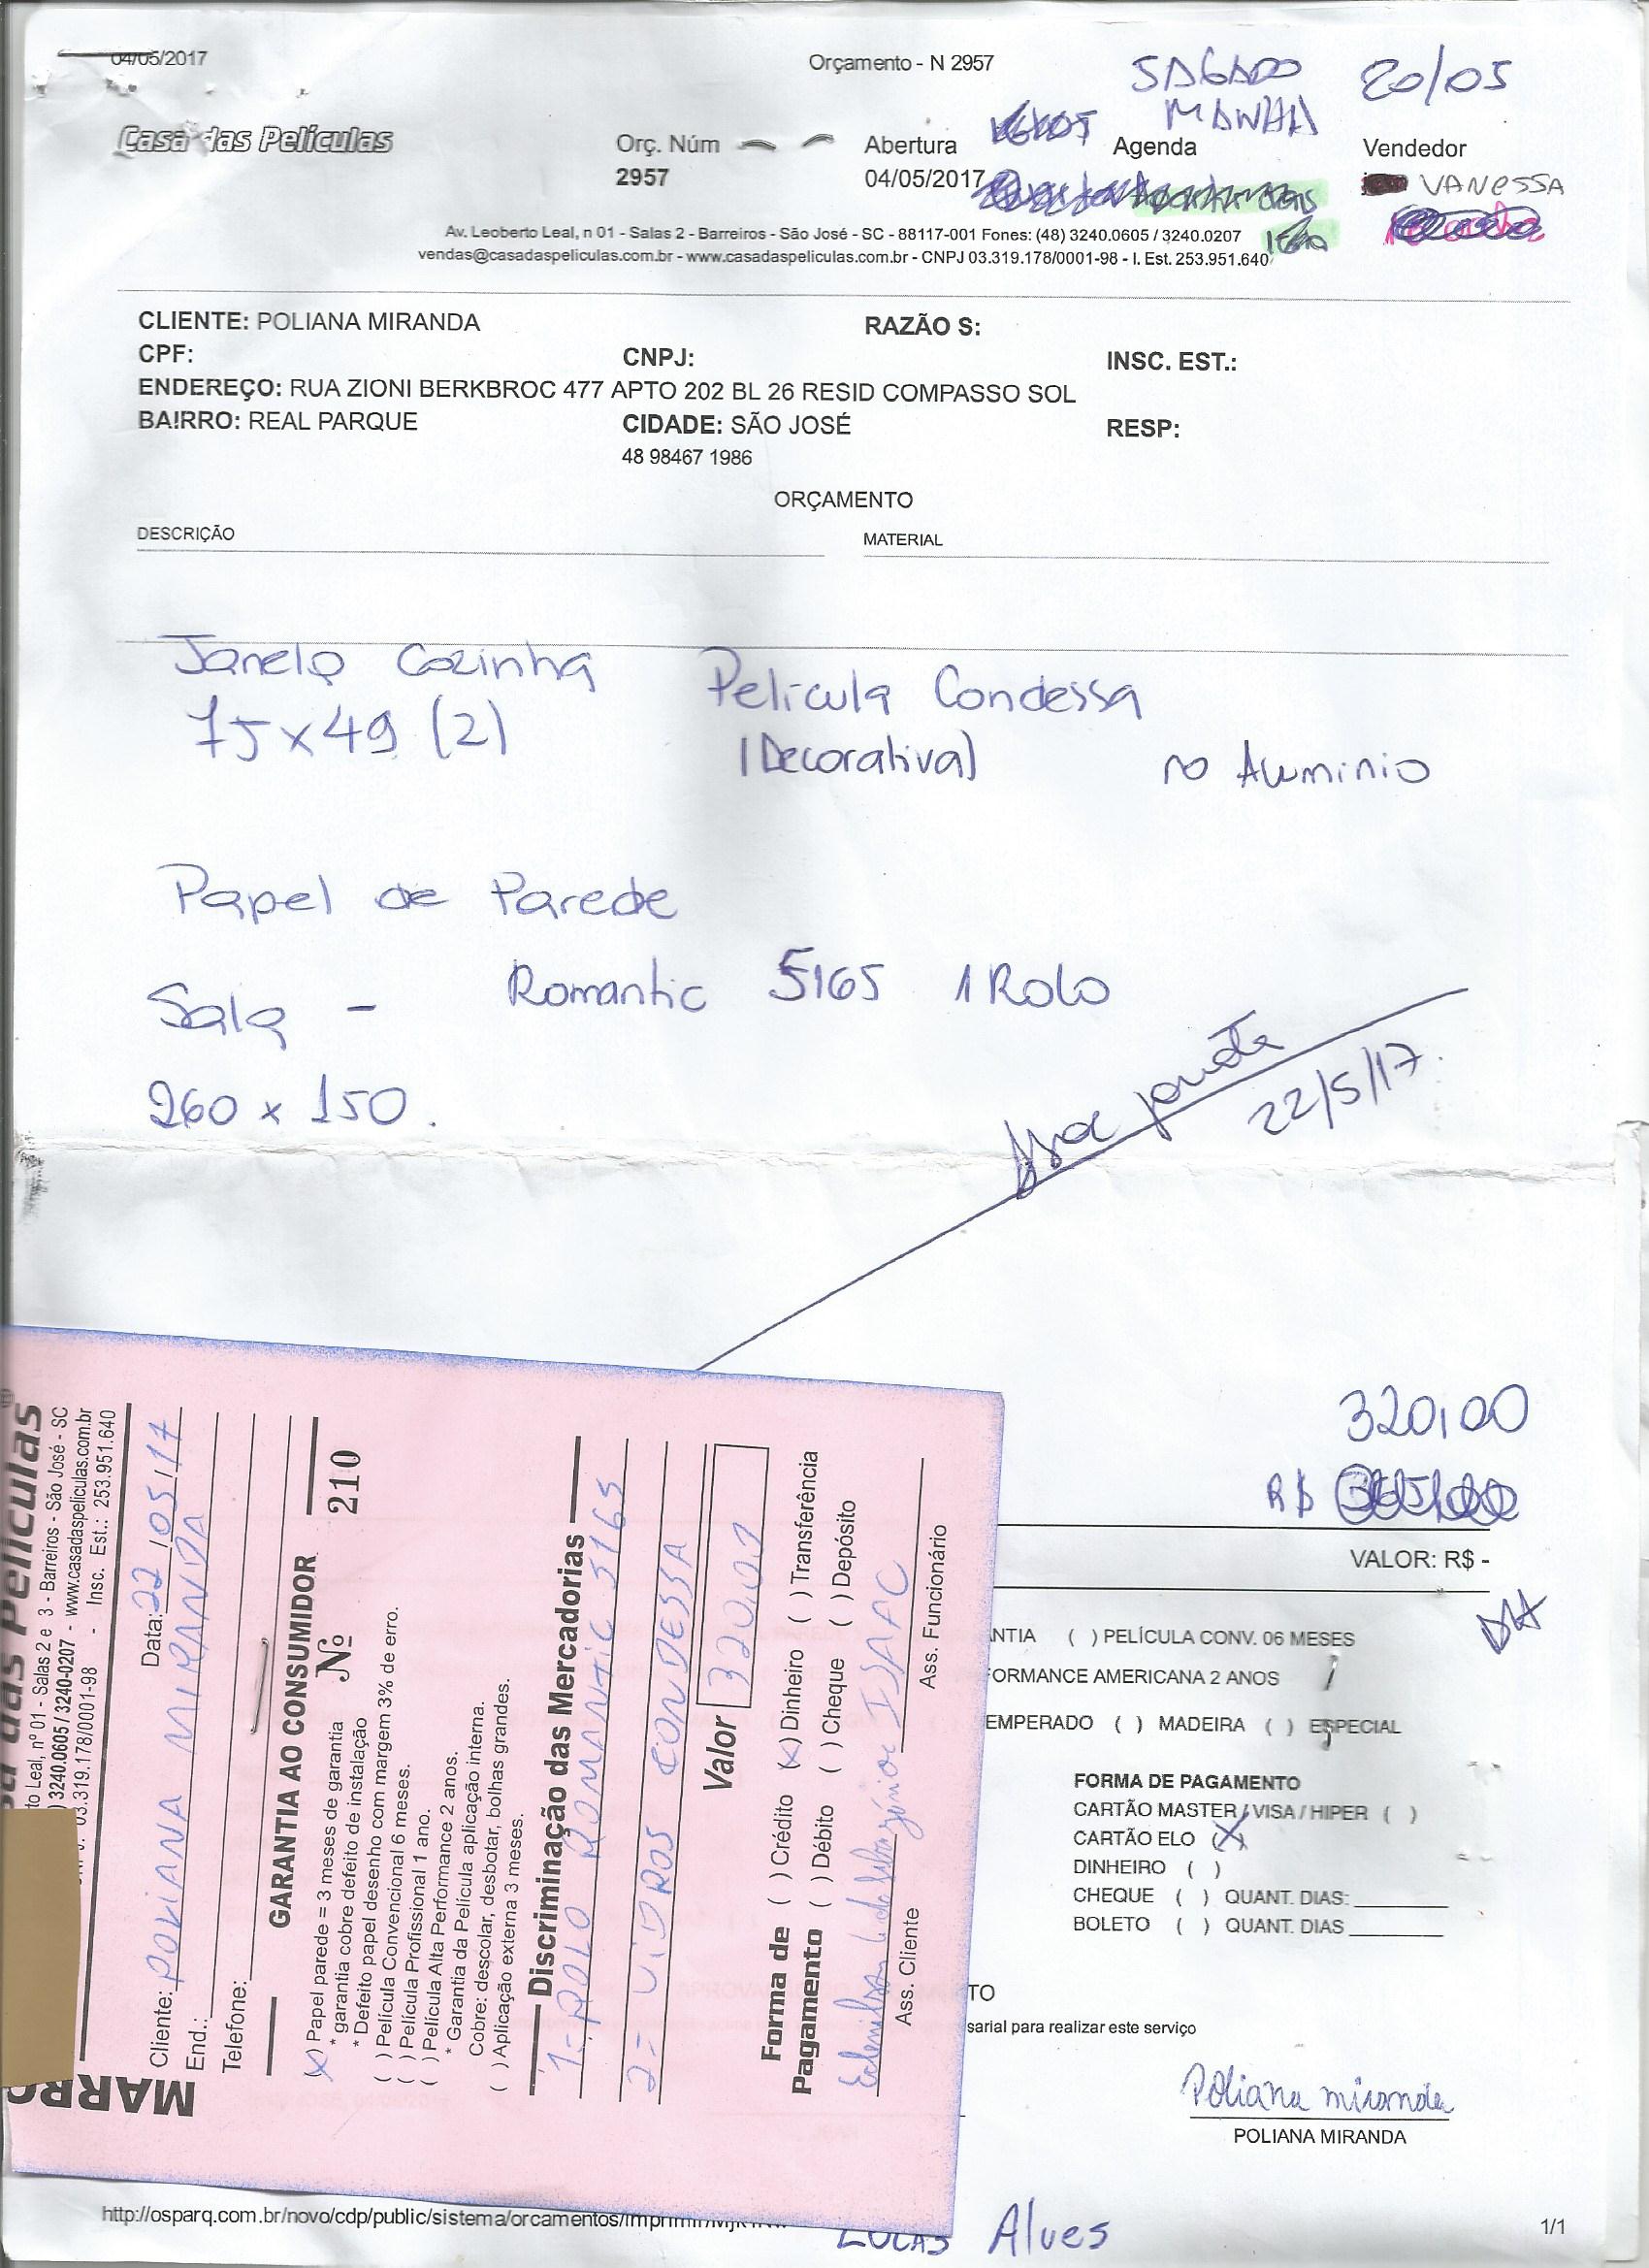 04/05/2017 Orçamento - N 2957
SABADO 20/05
MANHA
Casa das Películas
Orç. Núm Abertura Agenda Vendedor
2957 04/05/2017 VANESSA
Av. Leoberto Leal, n 01 - Salas 2 - Barreiros - São José - SC - 88117-001 Fones: (48) 3240.0605 / 3240.0207
vendas@casadaspeliculas.com.br - www.casadaspeliculas.com.br - CNPJ 03.319.178/0001-98 - I. Est. 253.951.640
CLIENTE: POLIANA MIRANDA RAZÃO S:
CPF: CNPJ: INSC. EST.:
ENDEREÇO: RUA ZIONI BERKBROC 477 APTO 202 BL 26 RESID COMPASSO SOL
BAIRRO: REAL PARQUE CIDADE: SÃO JOSÉ RESP:
48 98467 1986
ORÇAMENTO
DESCRIÇÃO MATERIAL
Janela Cozinha Película Condessa
75 x 49 (2) (Decorativa) no Aluminio
Papel de Parede
Sala - Romantic 5165 1 Rolo
260 x 150.
22/5/17.
320,00
R$
VALOR: R$ -
NTIA ( ) PELÍCULA CONV. 06 MESES
FORMANCE AMERICANA 2 ANOS
EMPERADO ( ) MADEIRA ( ) ESPECIAL
FORMA DE PAGAMENTO
CARTÃO MASTER / VISA / HIPER ( )
CARTÃO ELO (X)
DINHEIRO ( )
CHEQUE ( ) QUANT. DIAS:
BOLETO ( ) QUANT. DIAS
TO
sarial para realizar este serviço
Poliana miranda
POLIANA MIRANDA
das Películas
to Leal, nº 01 - Salas 2 e 3 - Barreiros - São José - SC
) 3240.0605 / 3240-0207 - www.casadaspeliculas.com.br
03.319.178/0001-98 - Insc. Est.: 253.951.640
MARRO
Data: 22/05/17
Cliente: POLIANA MIRANDA
End.:
Telefone:
GARANTIA AO CONSUMIDOR Nº 210
(X) Papel parede = 3 meses de garantia
* garantia cobre defeito de instalação
* Defeito papel desenho com margem 3% de erro.
( ) Película Convencional 6 meses.
( ) Película Profissional 1 ano.
( ) Película Alta Performance 2 anos.
* Garantia da Película aplicação interna.
Cobre: descolar, desbotar, bolhas grandes.
( ) Aplicação externa 3 meses.
Discriminação das Mercadorias
1 - ROLO ROMANTIC 5165
2 - ViDROS CONDESSA
Valor 320,00
Forma de Pagamento ( ) Crédito (X) Dinheiro ( ) Transferência
( ) Débito ( ) Cheque ( ) Depósito
ISAAC
Ass. Cliente Ass. Funcionário
http://osparq.com.br/novo/cdp/public/sistema/orcamentos/imprimir/ 1/1
LUCAS Alves